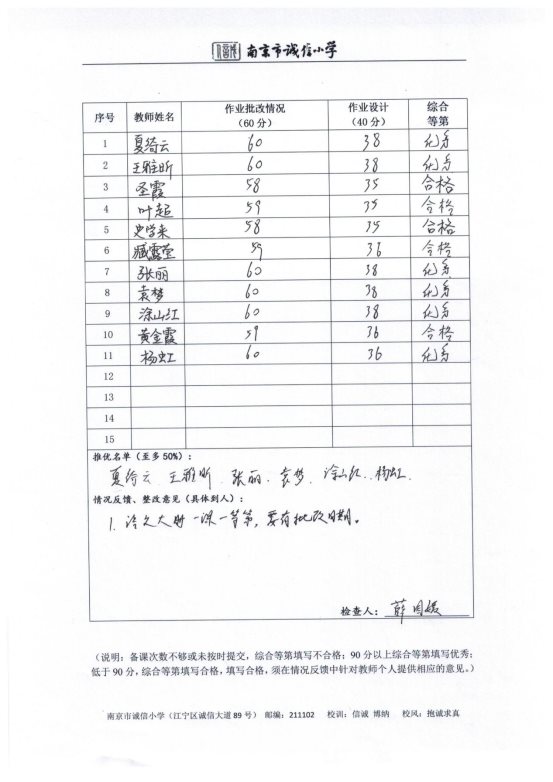 南京市诚信小学
序号 教师姓名 作业批改情况（60 分） 作业设计（40 分） 综合等第
1 夏绮云 60 38 优秀
2 王雅昕 60 38 优秀
3 圣霞 58 35 合格
4 叶超 59 35 合格
5 史学来 58 35 合格
6 臧露莹 59 36 合格
7 张丽 60 38 优秀
8 袁梦 60 38 优秀
9 涂山红 60 38 优秀
10 黄金霞 59 36 合格
11 杨虹 60 36 优秀
12
13
14
15
推优名单（至多 50%）：
夏绮云、王雅昕、张丽、袁梦、涂山红、杨虹
情况反馈、整改意见（具体到人）：
1. 一课一等第，要有批改日期。
检查人：
（说明：备课次数不够或未按时提交，综合等第填写不合格；90 分以上综合等第填写优秀；
低于 90 分，综合等第填写合格，填写合格，须在情况反馈中针对教师个人提供相应的意见。）
南京市诚信小学（江宁区诚信大道 89 号） 邮编：211102 校训：信诚 博纳 校风：抱诚求真